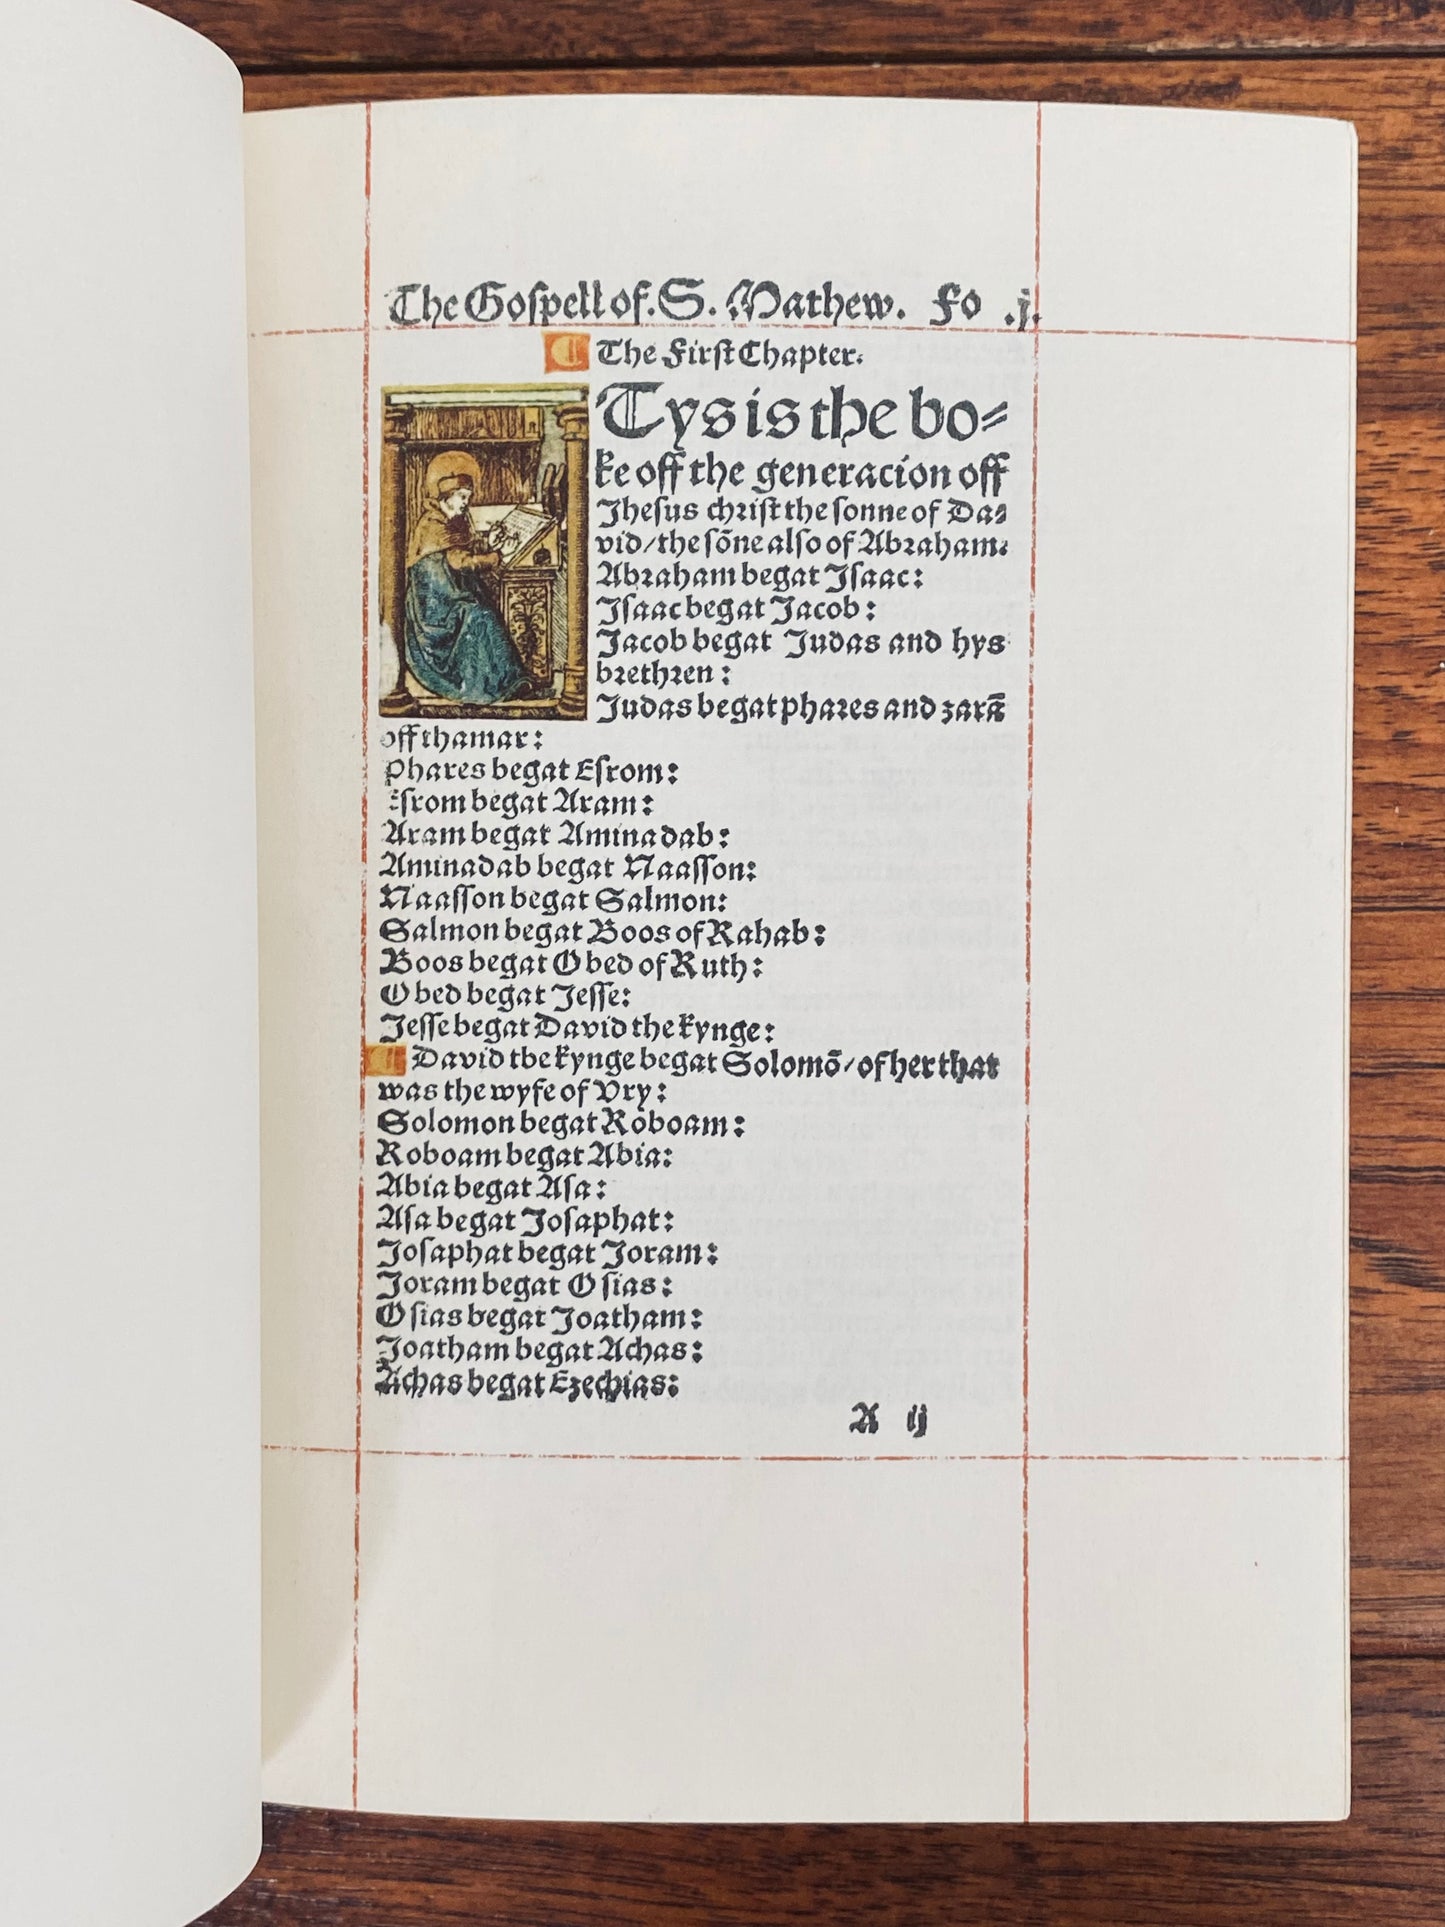 The Gospell of. S. Mathew. Fo .j.
¶ The First Chapter.
Tys is the bo⸗
ke off the generacion off
Jhesus christ the sonne of Da⸗
vid/the sõne also of Abraham.
Abraham begat Isaac:
Isaac begat Jacob:
Jacob begat Judas and hys
brethren:
Judas begat phares and zarã
off thamar:
Phares begat Esrom:
Esrom begat Aram:
Aram begat Aminadab:
Aminadab begat Naasson:
Naasson begat Salmon:
Salmon begat Boos of Rahab:
Boos begat Obed of Ruth:
Obed begat Jesse:
Jesse begat David the kynge:
¶ David the kynge begat Solomõ/of her that
was the wyfe of Vry:
Solomon begat Roboam:
Roboam begat Abia:
Abia begat Asa:
Asa begat Josaphat:
Josaphat begat Joram:
Joram begat Osias:
Osias begat Joatham:
Joatham begat Achas:
Achas begat Ezechias:
A ij